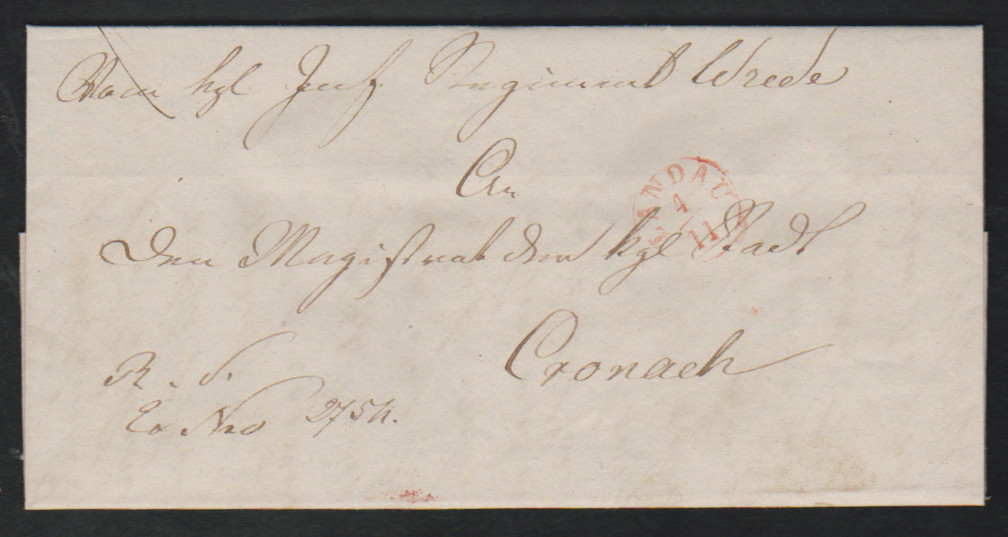 Vom kgl Inf. Regiment Wrede
An
LANDAU
4
11
Den Magistrat der kgl Stadt
Cronach
R. S.
Nro 2754.